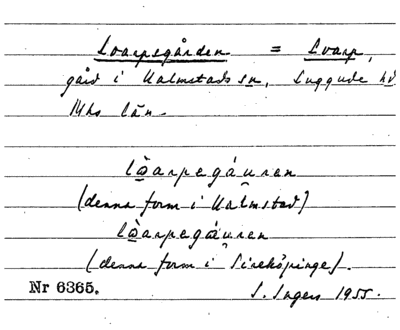 Loarpsgården = Loarp,
gård i Kalmstads sn, Luggude hd
Mhs län.
lòarpegáuren
(denna form i Halmstad)
lòarpegáuren
(denna form i Sireköpinge).
Nr 6365.
S. Ingers 1955.